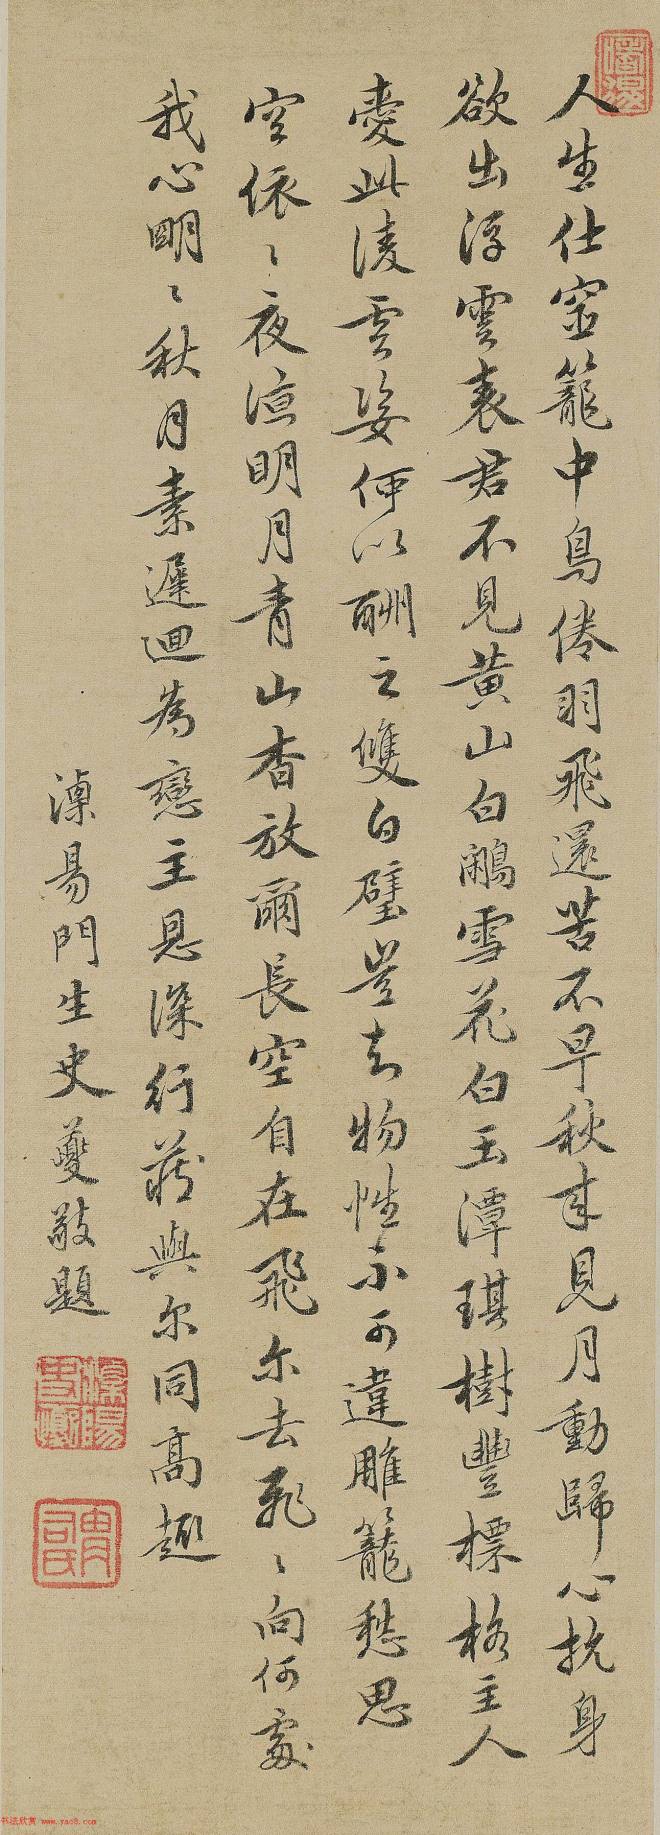 人生仕宦籠中鳥倦羽飛還苦不早秋來見月動歸心抗身
欲出浮雲表君不見黃山白鷴雪花白玉潭琪樹豐標格主人
愛此凌雲姿何以酬之雙白璧豈知物性不可違雕籠愁思
空依〻夜涼明月青山杳放爾長空自在飛尔去飛〻向何處
我心明〻秋月素遲迴為戀主恩深行藏與尔同高趣
溧昜門生史夔敬題
书法欣赏 www.yac8.com